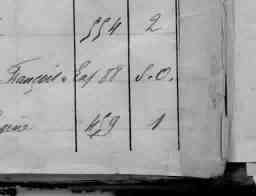 554 2
François. Cap 88 S.O.
459 1